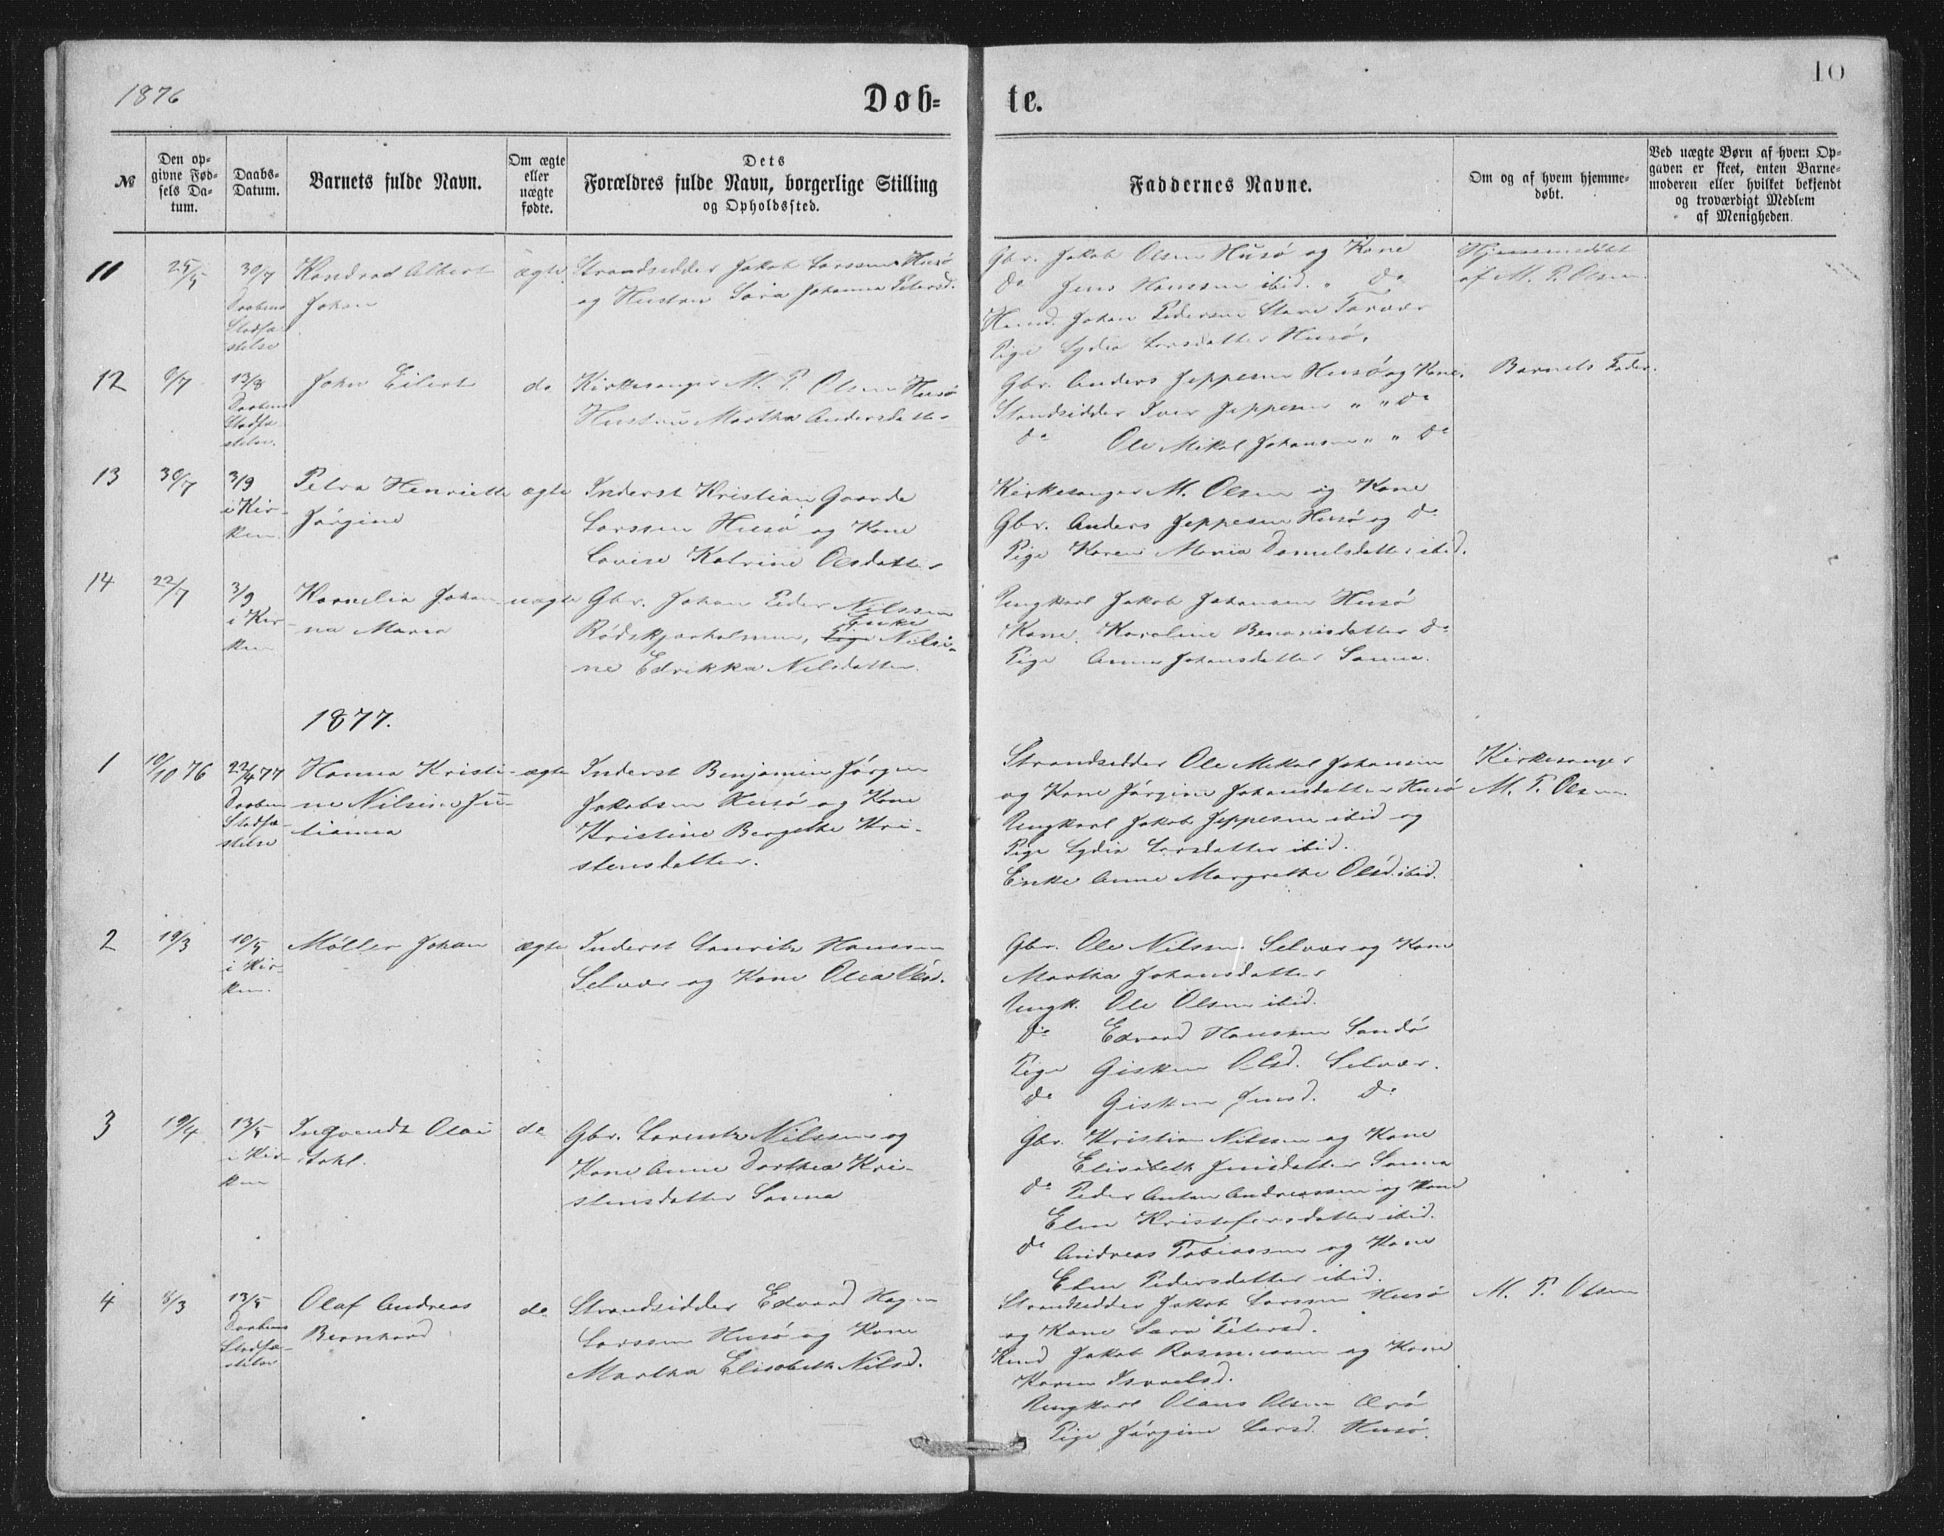 1876
Døb=
te.
10
№
Den op-
givne Fød-
sels Da-
tum.
Daabs-
Datum.
Barnets fulde Navn.
Om ægte
eller
uægte
fødte.
Dets
Forældres fulde Navn, borgerlige Stilling
og Opholdssted.
Faddernes Navne.
Om og af hvem hjemme-
døbt.
Ved uægte Børn af hvem Op-
gaven er skeet, enten Barne-
moderen eller hvilket bekjendt
og troværdigt Medlem
af Menigheden.
11
25/5
30/7
Daabens
Stadfæ-
stelse
Kondrad Albert
Johan
ægte
Strandsidder Jakob Larssen Husø
og Hustru Sara Johanna Petersd.
Gbr. Jakob Olsen Husø og Kone
Do Jens Hanssen ibid. " Do
Johan Pedersen
Pige Lydia Larsdatter Husø.
Hjemmedøbt
af M. P. Olsen
12
9/7
13/8
Daabens
Stadfæ-
stelse.
John Eilert
do
Kirkesanger M. P. Olsen Husø
Hustru Martha Andersdatter
Gbr. Anders Jeppesen Husø og Kone.
Strandsidder Iver Jeppesen " " Do
Do Ole Mikal Johansen " " Do
Barnets Fader.
13
30/7
3/9
i Kir-
ken.
Petra Henriette
Jørgine
ægte
Inderst Kristian Gaarde
Larssen Husø og Kone
Lovise Katrine Olsdatter
Kirkesanger M. Olsen og Kone
Gbr. Anders Jeppesen Husø og Do
Pige Karen Maria Danielsdatter ibid.
14
22/7
3/9
i Kir-
ken
Kornelia Johan-
na Maria
uægte
Gbr. Johan Peder Nilssen
Enke
Rødskjærholmen, Pige Nilsi-
ne Edrikka Nilsdatter.
Ungkarl Jakob Johansen Husø
Kone Karoline Do
Pige Anna Johansdatter Sanna.
1877.
1
19/10 76
22/4 77
Daaben
Stadfæ-
stelse
Hanna Kristi-
ne Nilsine Ju-
tianna
ægte
Inderst Benjamin Jørgen
Jakobsen Husø og Kone
Kristine Bergethe Kri-
stensdatter.
Strandsidder Ole Mikal Johansen
og Kone Jørgine Johansdatter Husø
Ungkarl Jakob Jeppesen ibid og
Pige Lydia Larsdatter ibid.
Enke Anne Margrethe Olsd. ibid.
Kirkesanger
M. P. Olsen.
2
19/3
10/5
i Kir-
ken.
Møller Johan
ægte
Inderst Lauritz Hanssen
Selvær og Kone Olea Olsd.
Gbr. Ole Nilssen Selvær og Kone
Martha Johansdatter
Ungk. Ole Olsen ibid.
Do Edvard Hanssen Sandø
Pige Gisken Olsd. Selvær.
Do Gisken Jensd. Do
3
19/4
13/5
i Kir-
ken
Ingvardt Olai
do
Gbr. Lorentz Nilssen og
Kone Anne Dorthea Kri-
stensdatter Sanna
Gbr. Kristian Nilssen og Kone
Elisabeth Jensdatter Sanna
Do Peder Anton Andreassen og Kone
Elen Kristofersdatter ibid.
Do Andreas Tobiassen og Kone
Elen Pedersdatter ibid.
4
8/3
13/5
Daabens
Stadfæ-
stelse
Olaf Andreas
Bernhard
do
Strandsidder Edvard Hagen
Larssen Husø og Kone
Martha Elisabeth Nilsd.
Strandsidder Jakob Larssen Husø
og Kone Sara Petersd.
Jakob Rasmussen og Kone
Karen Israelsd.
Ungkarl Olaus Olsen
Pige Jørgine Larsd. Husø.
M. P. Olsen